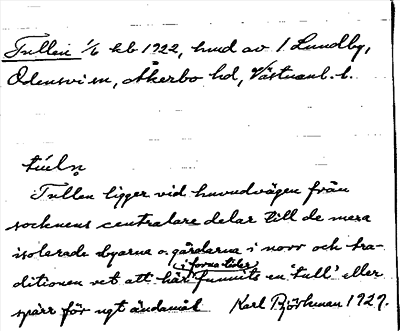 Tullen 1/6 kb 1922, hmd av 1 Lundby,
Odensvi sn, Åkerbo hd, Västmanl. l.
túeln
Tullen ligger vid huvudvägen från
socknens centralare delar till de mera
isolerade byarna o. gårdarna i norr och tra-
i forna tider
ditionen vet att här funnits en 'tull' eller
spärr för ngt ändamål Karl Björkman 1927.